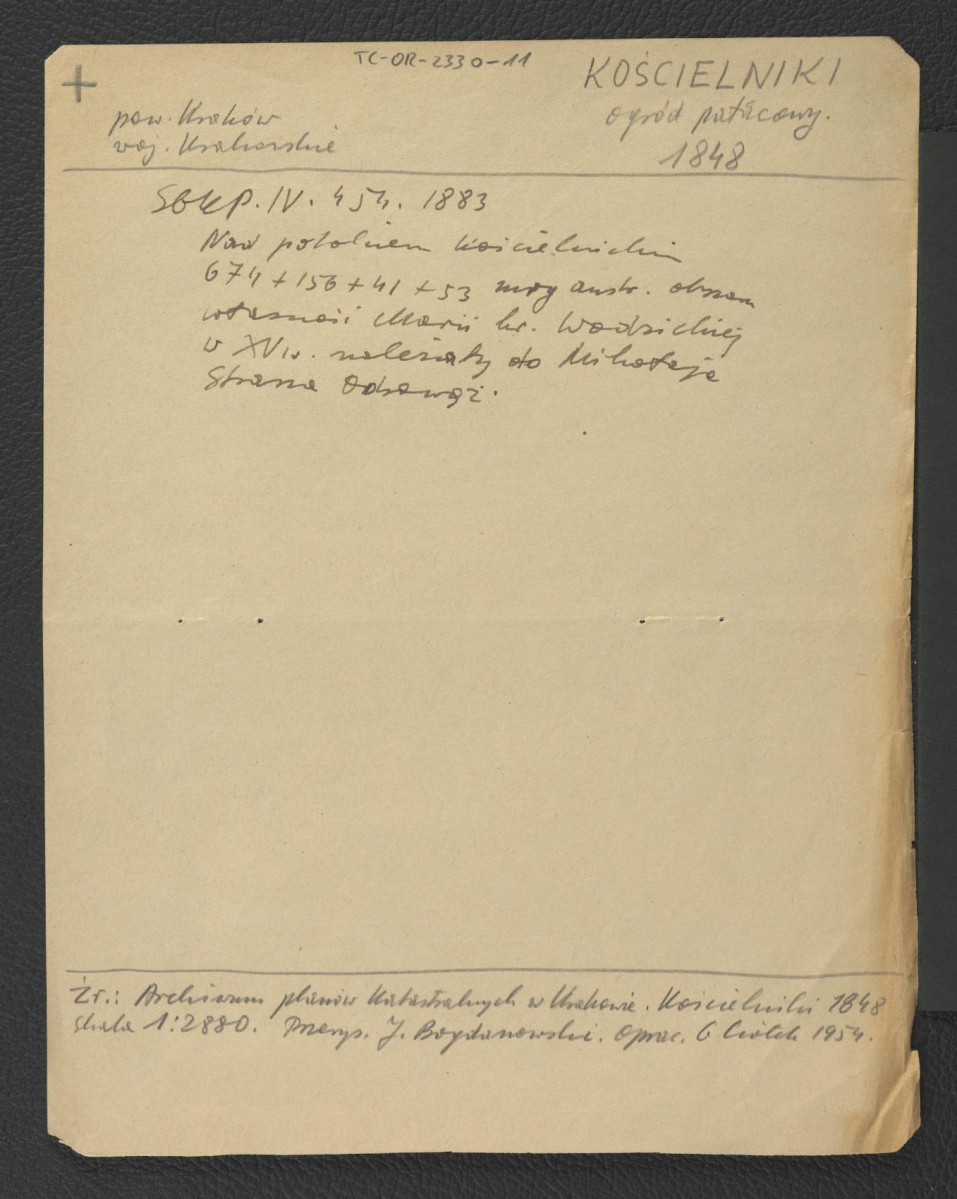 TC-OR-2330-11
KOŚCIELNIKI
ogród pałacowy.
1848
pow. Kraków
woj. Krakowskie
SGKP. IV. 454. 1883
Nad potokiem Kościelnickim
674 + 156 + 41 + 53 morg austr. obszar
własności Marii hr. Wodzickiej
w XV w. należały do Mikołaja
Strasza Odrowąż.
Źr.: Archiwum planów Katastralnych w Krakowie. Kościelniki 1848
skala 1:2880. Przerys. J. Bogdanowski. oprac. G. Ciołek 1954.